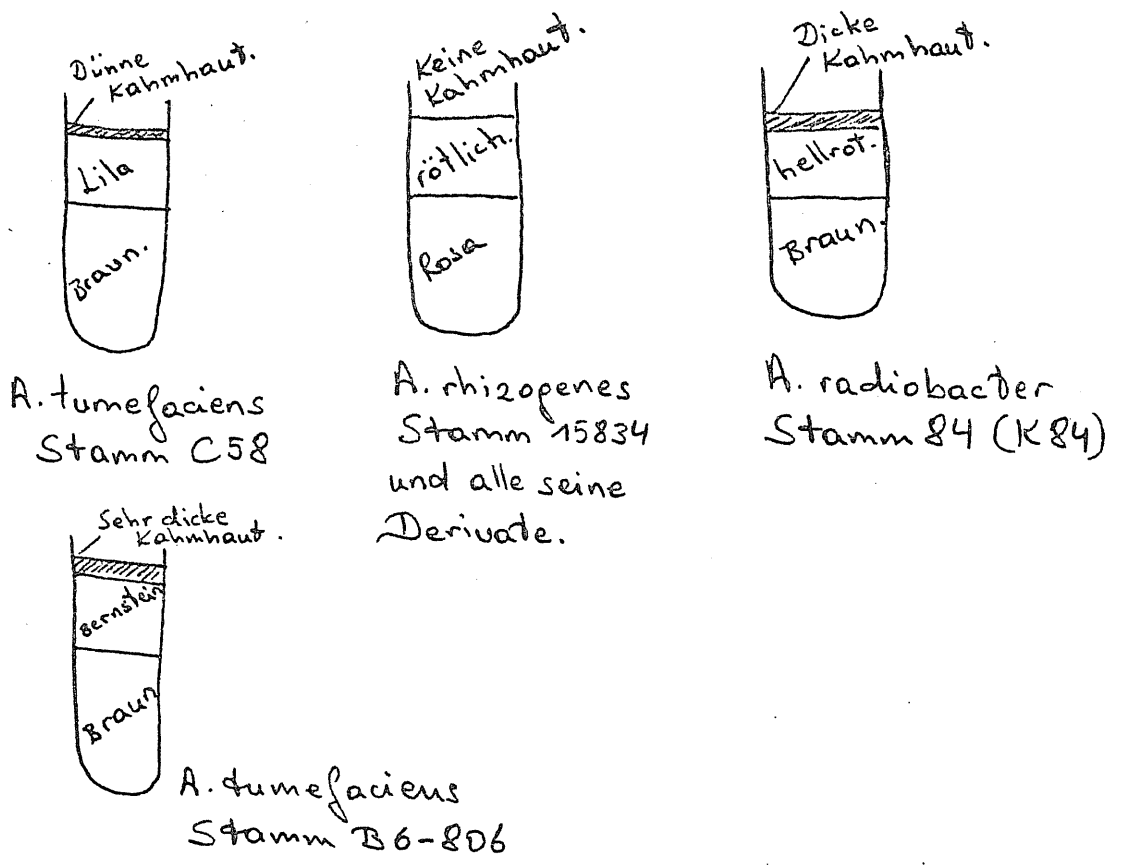 Dünne
Kahmhaut.
Lila
Braun.
A. tumefaciens
Stamm C58
Keine
Kahmhaut.
rötlich.
Rosa
A. rhizogenes
Stamm 15834
und alle seine
Derivate.
Dicke
Kahmhaut.
hellrot.
Braun.
A. radiobacter
Stamm 84 (K84)
Sehr dicke
Kahmhaut.
Bernstein
Braun
A. tumefaciens
Stamm B6-806